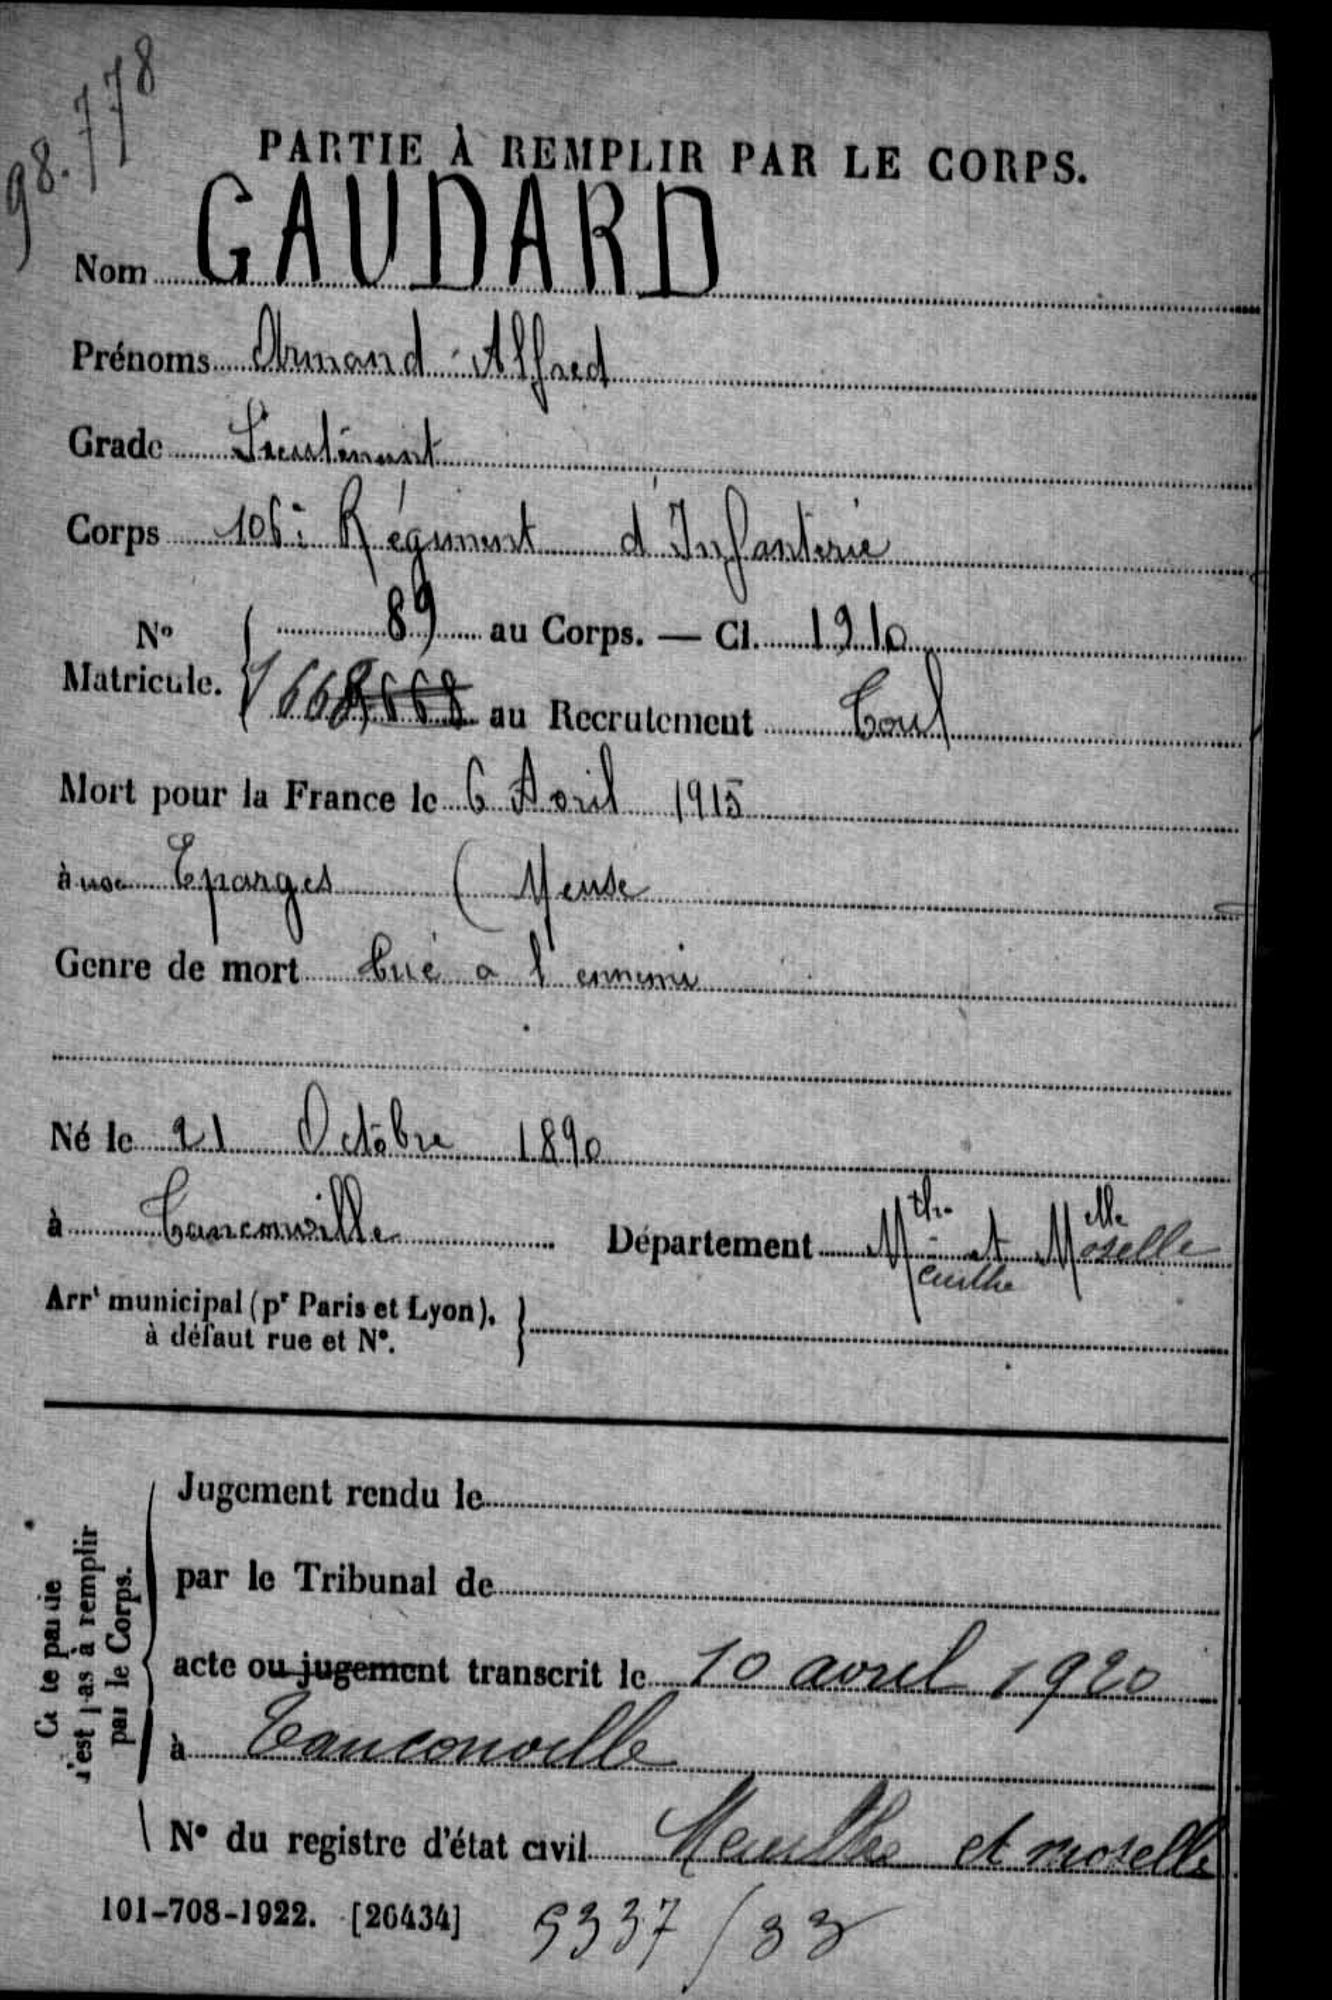 98.778
PARTIE À REMPLIR PAR LE CORPS.
Nom GAUDARD
Prénoms Armand Alfred
Grade Lieutenant
Corps 106e Régiment d'Infanterie
No Matricule. { 89 au Corps. — Cl. 1910
1668 668 au Recrutement Toul
Mort pour la France le 6 Avril 1915
à Eparges (Meuse
Genre de mort tué a l'ennemi
Né le 21 Octobre 1890
à Tanconville Département Mthe et Mlle
Meurthe Moselle
Arrt municipal (pr Paris et Lyon),
à défaut rue et No. }
Jugement rendu le
par le Tribunal de
acte ou jugement transcrit le 10 avril 1920
à Tanconville
No du registre d'état civil Meurthe et moselle
Cette partie
n'est pas à remplir
par le Corps.
101-708-1922. [26434] 5337/33